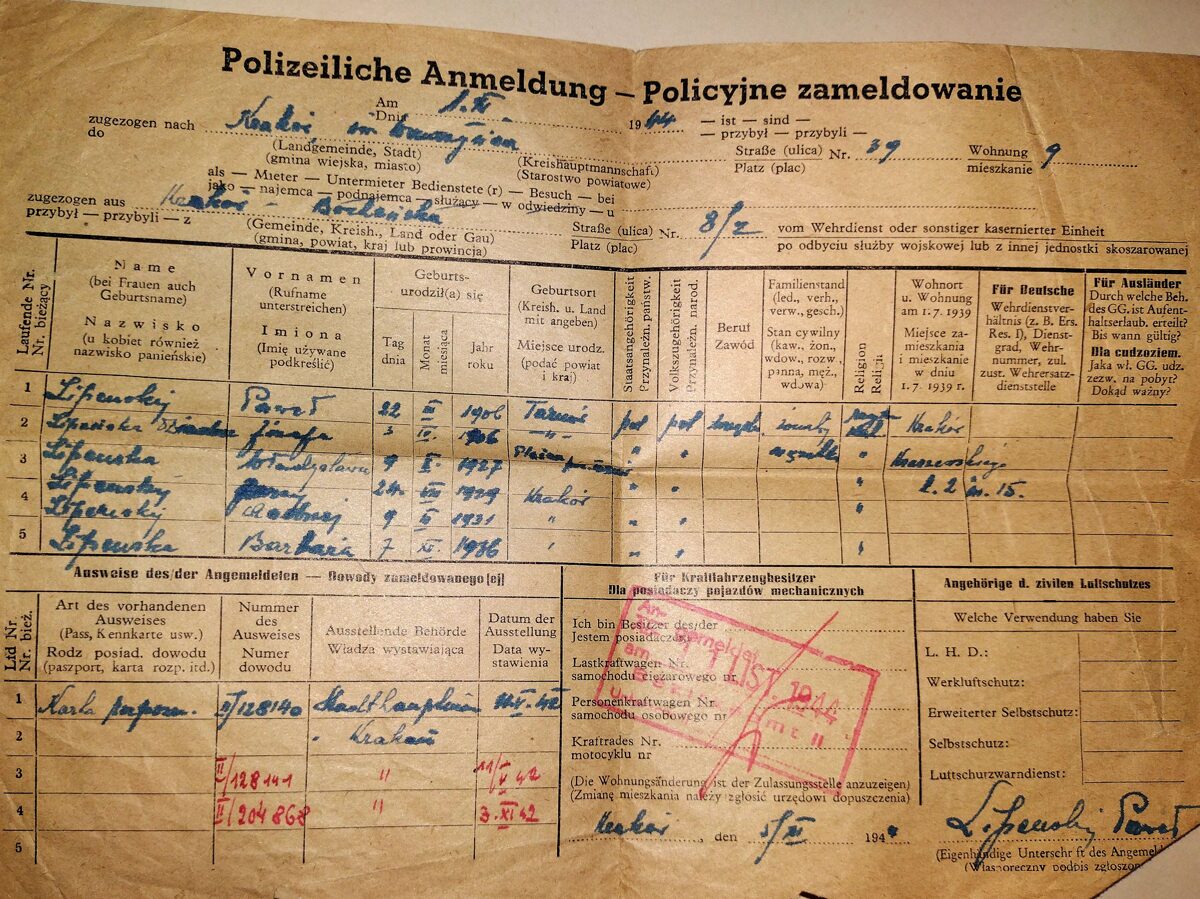 Polizeiliche Anmeldung – Policyjne zameldowanie
Am
Dnia 1. XI. 1944 — ist — sind —
— przybył — przybyli —
zugezogen nach
do Kraków
(Landgemeinde, Stadt)
(gmina wiejska, miasto)
(Kreishauptmannschaft)
(Starostwo powiatowe)
Straße (ulica)
Platz (plac) Nr. 39 Wohnung
mieszkanie 9
als — Mieter — Untermieter Bedienstete (r) — Besuch — bei
jako — najemca — podnajemca — służący — w odwiedziny — u
zugezogen aus
przybył — przybyli — z Kraków - Bocheńska
(Gemeinde, Kreish., Land oder Gau)
(gmina, powiat, kraj lub prowincja)
Straße (ulica)
Platz (plac) Nr. 8/2
vom Wehrdienst oder sonstiger kasernierter Einheit
po odbyciu służby wojskowej lub z innej jednostki skoszarowanej
Laufende Nr.
Nr. bieżący
Name
(bei Frauen auch
Geburtsname)
Nazwisko
(u kobiet również
nazwisko panieńskie)
Vornamen
(Rufname
unterstreichen)
Imiona
(Imię używane
podkreślić)
Geburts-
urodził(a) się
Tag
dnia
Monat
miesiąca
Jahr
roku
Geburtsort
(Kreish. u. Land
mit angeben)
Miejsce urodz.
(podać powiat
i kraj)
Staatsangehörigkeit
Przynależn. państw.
Volkszugehörigkeit
Przynależn. narod.
Beruf
Zawód
Familienstand
(led., verh.,
verw., gesch.)
Stan cywilny
(kaw., żon.,
wdow., rozw.,
panna, męż.,
wdowa)
Religion
Religia
Wohnort
u. Wohnung
am 1. 7. 1939
Miejsce za-
mieszkania
i mieszkanie
w dniu
1. 7. 1939 r.
Für Deutsche
Wehrdienstver-
hältnis (z. B. Ers.
Res. I), Dienst-
grad, Wehr-
nummer, zul.
zust. Wehrersatz-
dienststelle
Für Ausländer
Durch welche Beh.
des GG. ist Aufent-
haltserlaub. erteilt?
Bis wann gültig?
Dla cudzoziem.
Jaka wł. GG. udz.
zezw. na pobyt?
Dokąd ważny?
1 Lipenskij Paweł 22 III 1906
2 Józefa 3 IV. 1906 " pol pol Kraków
3 Lipenska Władysława 9 X. 1927 " "
4 Lipenskij 24. VIII 1929 Kraków " " "
Lipenskij 9 II 1931 " " " "
5 Lipenska Barbara 7 XI. 1936 " " " "
Ausweise des/der Angemeldeten — Dowody zameldowanego[ej]
Ltd Nr.
Nr. bież.
Art des vorhandenen
Ausweises
(Pass, Kennkarte usw.)
Rodz posiad. dowodu
(paszport, karta rozp. itd.)
Nummer
des
Ausweises
Numer
dowodu
Ausstellende Behörde
Władza wystawiająca
Datum der
Ausstellung
Data wy-
stawienia
1 Karta II/128140
2 Krakau
3 II/128141 " 11/V 42
4 II/204868 " 3. XI 42
5
Für Kraftfahrzeugbesitzer
Dla posiadaczy pojazdów mechanicznych
Ich bin Besitzer des/der
Jestem posiadaczem
Lastkraftwagen Nr.
samochodu ciężarowego nr
Personenkraftwagen Nr.
samochodu osobowego nr
Kraftrades Nr.
motocyklu nr
(Die Wohnungsänderung ist der Zulassungsstelle anzuzeigen)
(Zmianę mieszkania należy zgłosić urzędowi dopuszczenia)
LIST. 1944
Kraków, den 5/XI 194
Angehörige d. zivilen Luftschutzes
Welche Verwendung haben Sie
L. H. D.:
Werkluftschutz:
Erweiterter Selbstschutz:
Selbstschutz:
Luftschutzwarndienst:
Lipenskij Paweł
(Eigenhändige Unterschrift des Angemeld
(Własnoręczny podpis zgłoszon